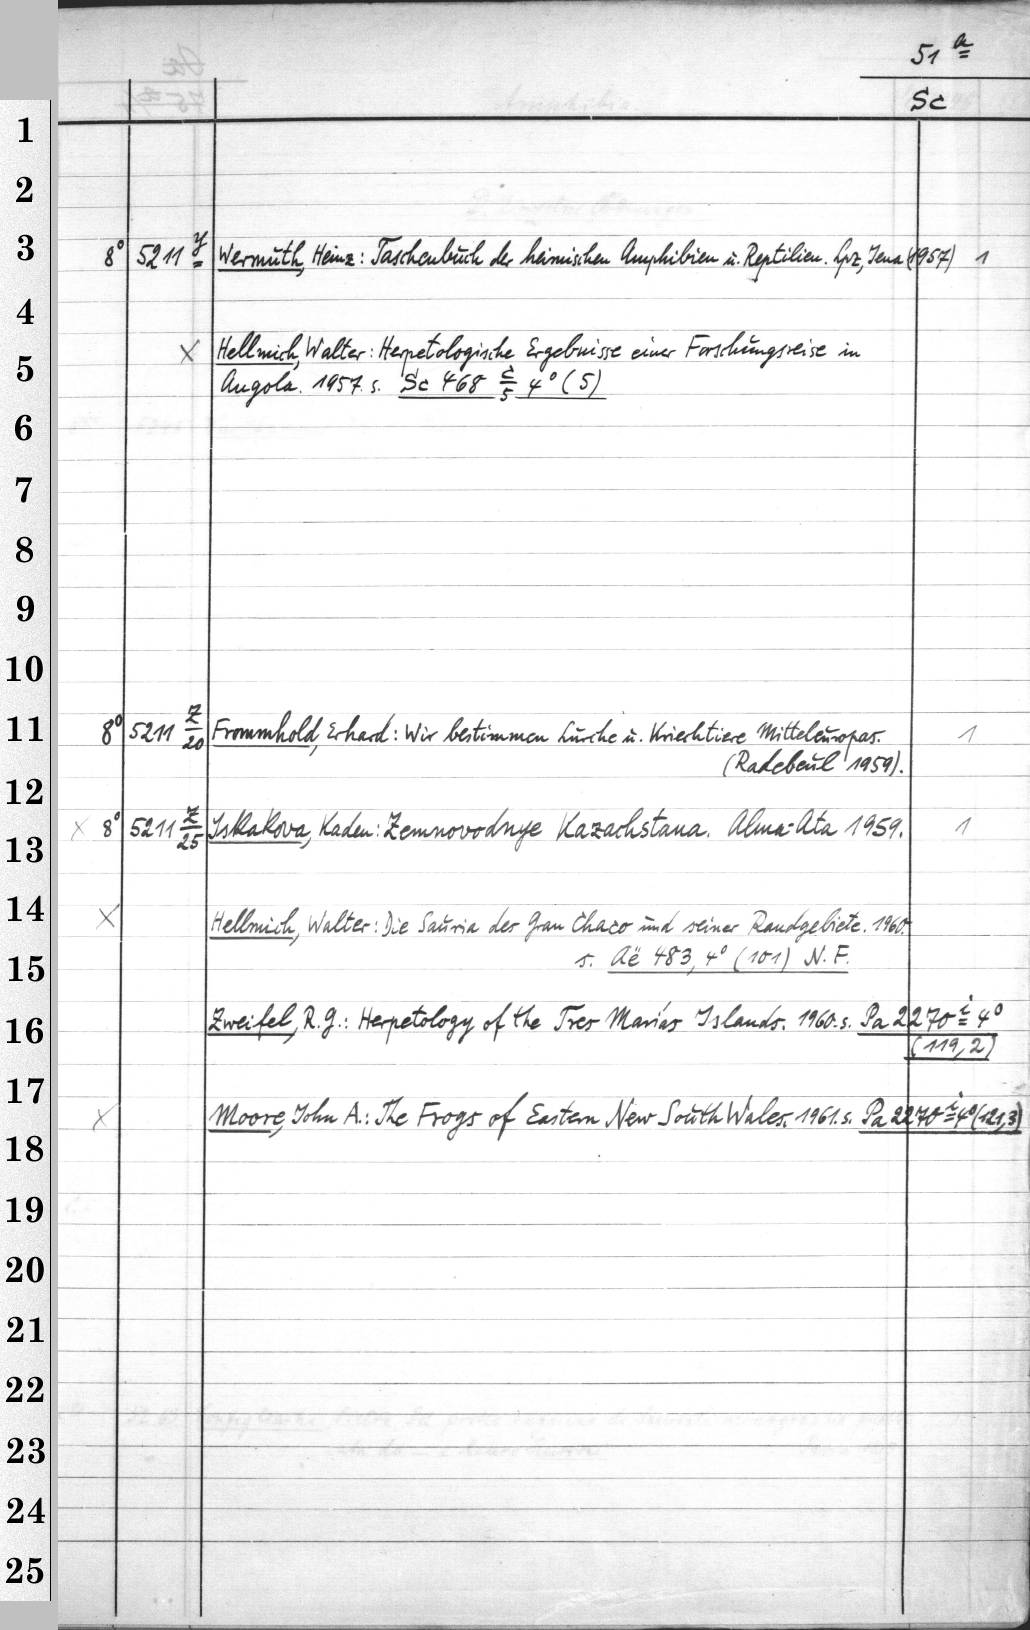 51 a
Sc
1
2
3 8° 5211 y Wermuth, Heinz: Taschenbuch der heimischen Amphibien u. Reptilien. Lpz, Jena (1957) 1
4
× Hellmich, Walter: Herpetologische Ergebnisse einer Forschungsreise in
5 Angola. 1957. s. Sc 468 c/5 4° (5)
6
7
8
9
10
11 8° 5211 z/20 Frommhold, Erhard: Wir bestimmen Lurche u. Kriechtiere Mitteleuropas. 1
(Radebeul 1959).
12
13 × 8° 5211 z/25 Iskakova, Kaden: Zemnovodnye Kazachstana. Alma-Ata 1959. 1
14 × Hellmich, Walter: Die Sauria des Gran Chaco und seiner Randgebiete. 1960.
15 s. Aë 483, 4° (101) N. F.
16 Zweifel, R. G.: Herpetology of the Tres Marías Islands. 1960. s. Pa 2270 i 4°
(119, 2)
17 × Moore, John A.: The Frogs of Eastern New South Wales. 1961. s. Pa 2270 i 4° (121, 3)
18
19
20
21
22
23
24
25